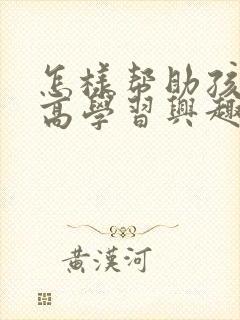 怎樣幫助孩
高學習興趣
黃漢河